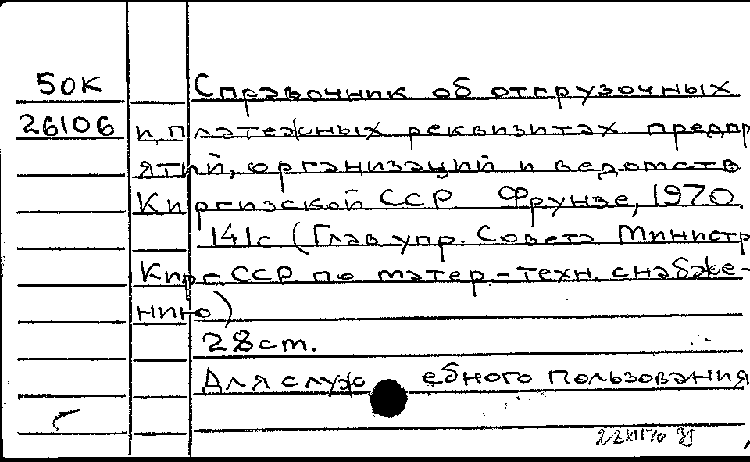 50К Справочник об отгрузочных
26106 и платежных реквизитах предпр
ятий, организаций и ведомств
Киргизской ССР Фрунзе, 1970.
141с (Глав упр. Совета Министр
Кирг ССР по матер-техн. снабже-
нию)
28 ст.
Для служебного пользования